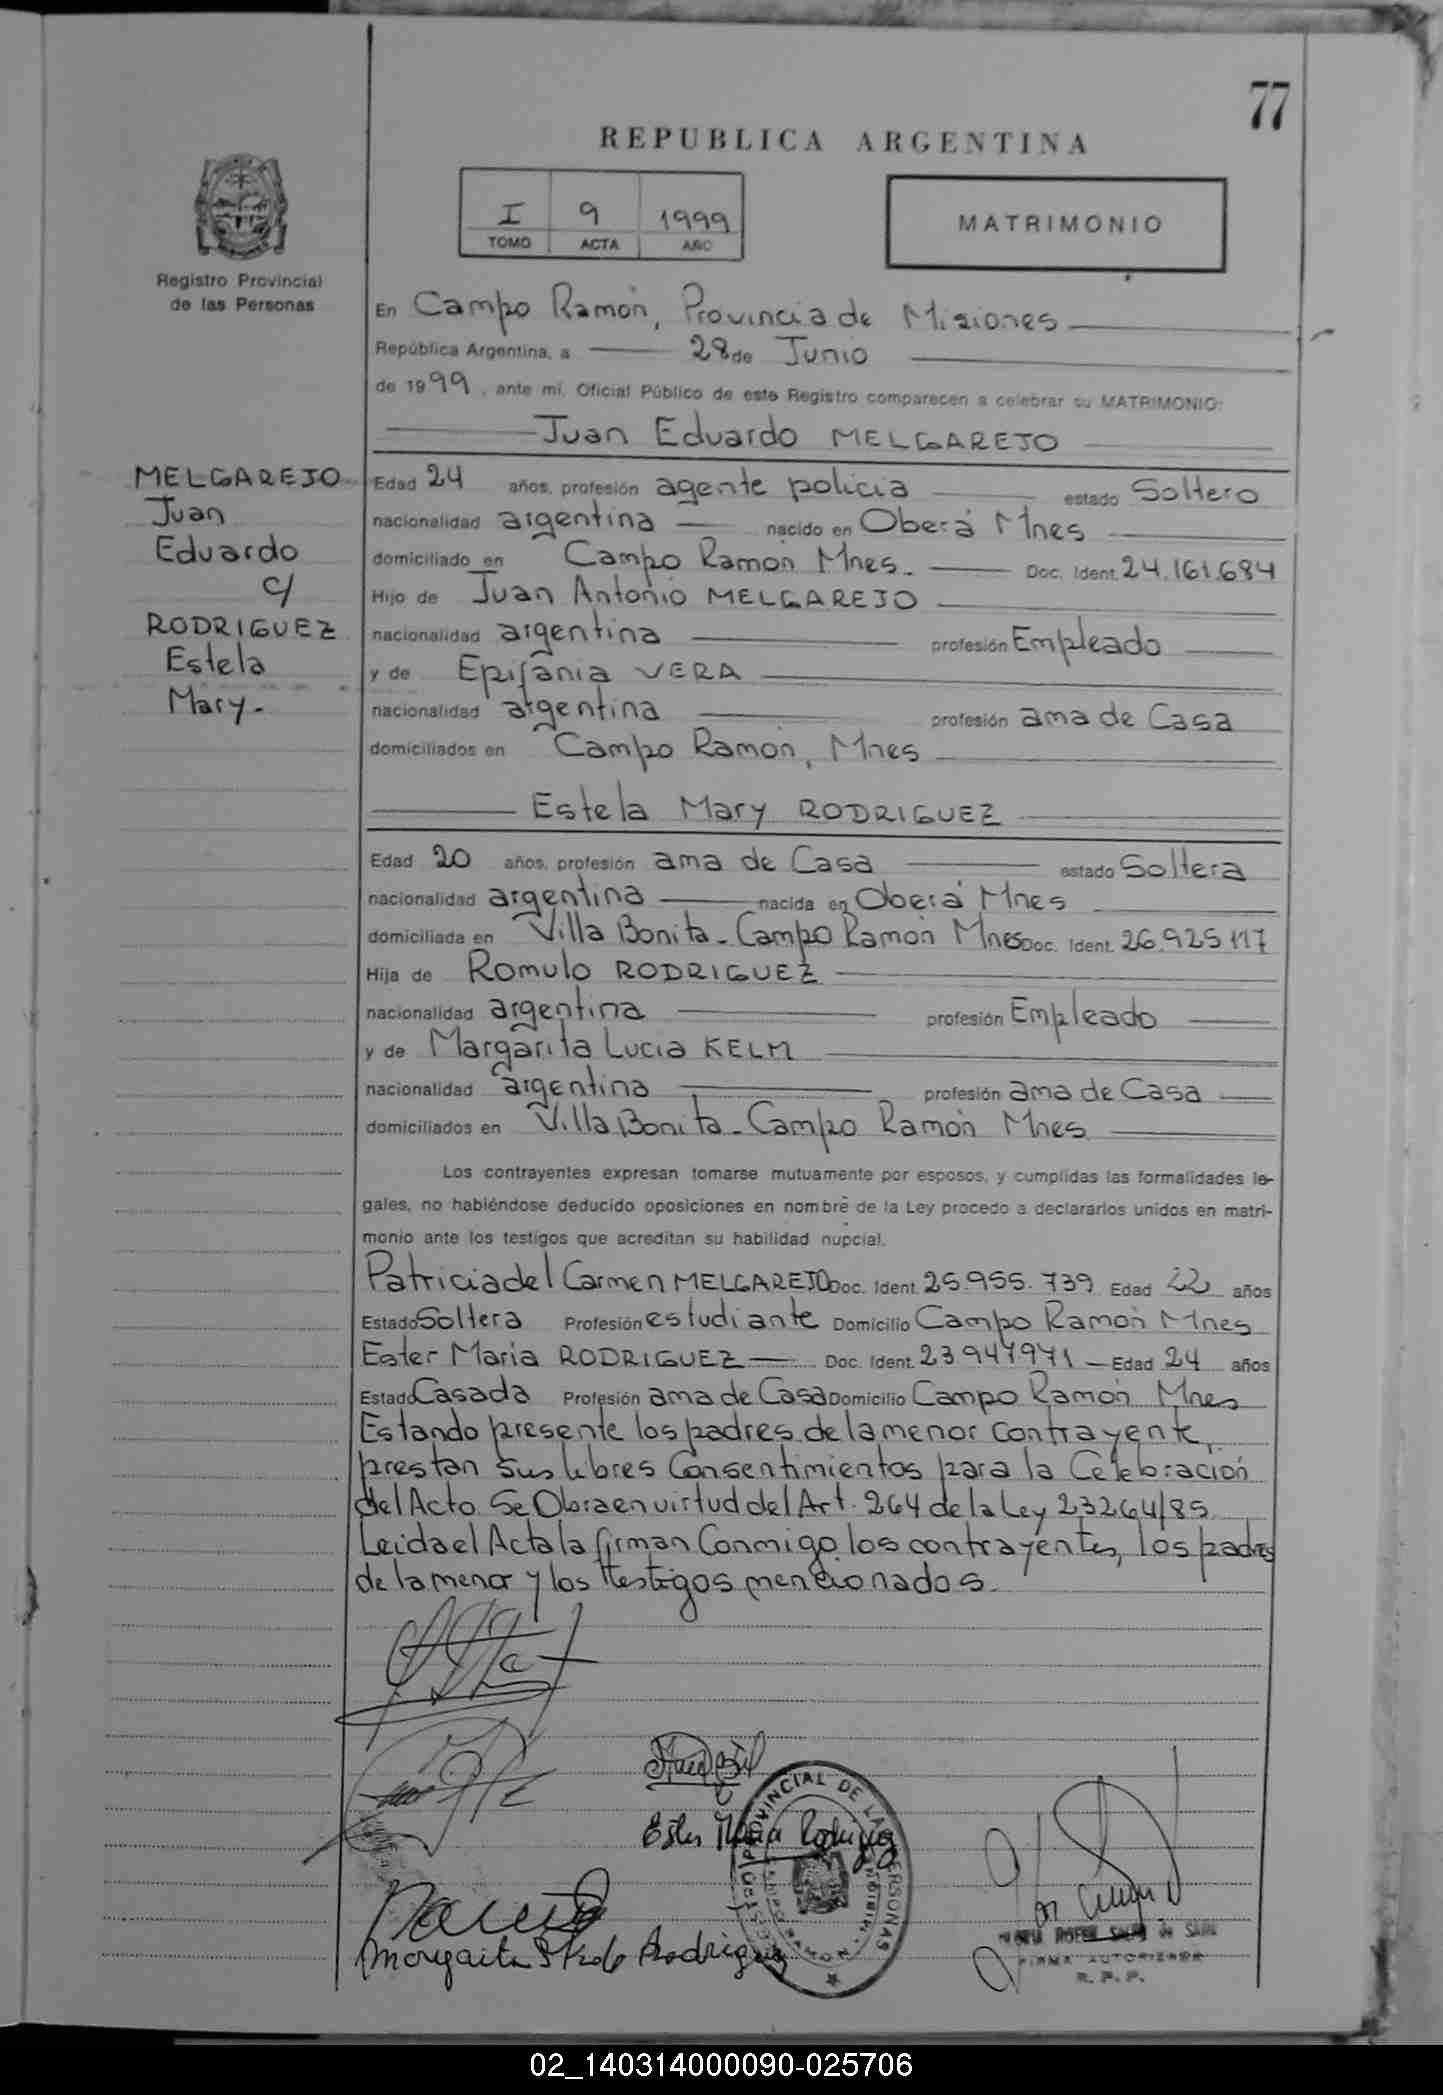 77
REPUBLICA ARGENTINA
I 9 1999
TOMO ACTA AÑO
MATRIMONIO
Registro Provincial
de las Personas
En Campo Ramón, Provincia de Misiones
República Argentina, a 28 de Junio
de 1999, ante mí, Oficial Público de este Registro comparecen a celebrar su MATRIMONIO:
Juan Eduardo MELGAREJO
MELGAREJO
Juan
Eduardo
c/
RODRIGUEZ
Estela
Mary.-
Edad 24 años, profesión agente policia estado Soltero
nacionalidad argentina nacido en Oberá Mnes
domiciliado en Campo Ramón Mnes. Doc. Ident. 24.161.684
Hijo de Juan Antonio MELGAREJO
nacionalidad argentina profesión Empleado
y de Epifania VERA
nacionalidad argentina profesión ama de Casa
domiciliados en Campo Ramón, Mnes
Estela Mary RODRIGUEZ
Edad 20 años, profesión ama de Casa estado Soltera
nacionalidad argentina nacida en Oberá Mnes
domiciliada en Villa Bonita - Campo Ramón Mnes Doc. Ident. 26.925 117
Hija de Romulo RODRIGUEZ
nacionalidad argentina profesión Empleado
y de Margarita Lucia KELM
nacionalidad argentina profesión ama de Casa
domiciliados en Villa Bonita - Campo Ramón Mnes
Los contrayentes expresan tomarse mutuamente por esposos, y cumplidas las formalidades le-
gales, no habiéndose deducido oposiciones en nombre de la Ley procedo a declararlos unidos en matri-
monio ante los testigos que acreditan su habilidad nupcial.
Patricia del Carmen MELGAREJO Doc. Ident. 25.955.739 Edad 22 años
Estado Soltera Profesión estudiante Domicilio Campo Ramón Mnes
Ester Maria RODRIGUEZ Doc. Ident. 23947971 Edad 24 años
Estado Casada Profesión ama de Casa Domicilio Campo Ramón Mnes
Estando presente los padres de la menor contrayente,
prestan sus libres Consentimientos para la Celebración
del Acto. Se Obra en virtud del Art. 264 de la Ley 23264/85
Leida el Acta la firman Conmigo los contrayentes, los padres
de la menor y los testigos mencionados.
Ester Maria Rodriguez
REGISTRO PROVINCIAL DE LAS PERSONAS
CAMPO RAMON
Margarita de Rodriguez
FIRMA AUTORIZADA
R. P. P.
02_140314000090-025706